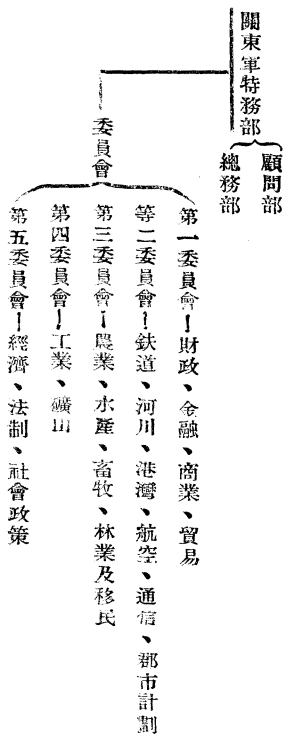 關東軍特務部
顧問部
總務部
委員會
第一委員會ー財政、金融、商業、貿易
等二委員會ー鉄道、河川、港灣、航空、通信、都市計劃
第三委員會ー農業、水產、畜牧、林業及移民
第四委員會ー工業、礦山
第五委員會ー經濟、法制、社會政策